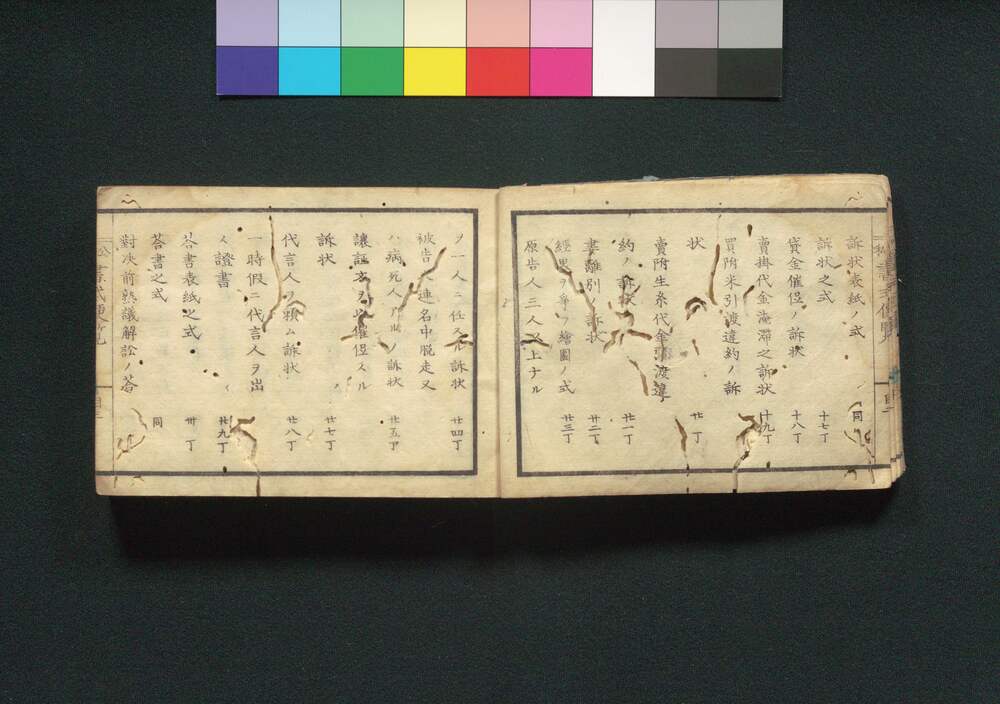 訴状表紙ノ式 同
訴状之式 十七丁
貸金催促ノ訴状 十八丁
賣掛代金淹滯之訴状 十九丁
買附米引渡違約ノ訴
状 廿丁
賣附生糸代金引渡違
約ノ訴状 廿一丁
妻離別ノ訴状 廿二丁
經界ヲ爭フ繪圖ノ式 廿三丁
原告人三人以上ナル
ヲ一人ニ任スル訴状 廿四丁
被告人連名中脱走又
ハ病死人アルノ訴状 廿五丁
讓証文ヲ以催促スル
訴状 廿七丁
代言人ヲ頼ム訴状 廿八丁
一時假ニ代言人ヲ出
ス證書 廿九丁
荅書表紙之式 卅丁
荅書之式 同
對决前熟議解訟ノ荅